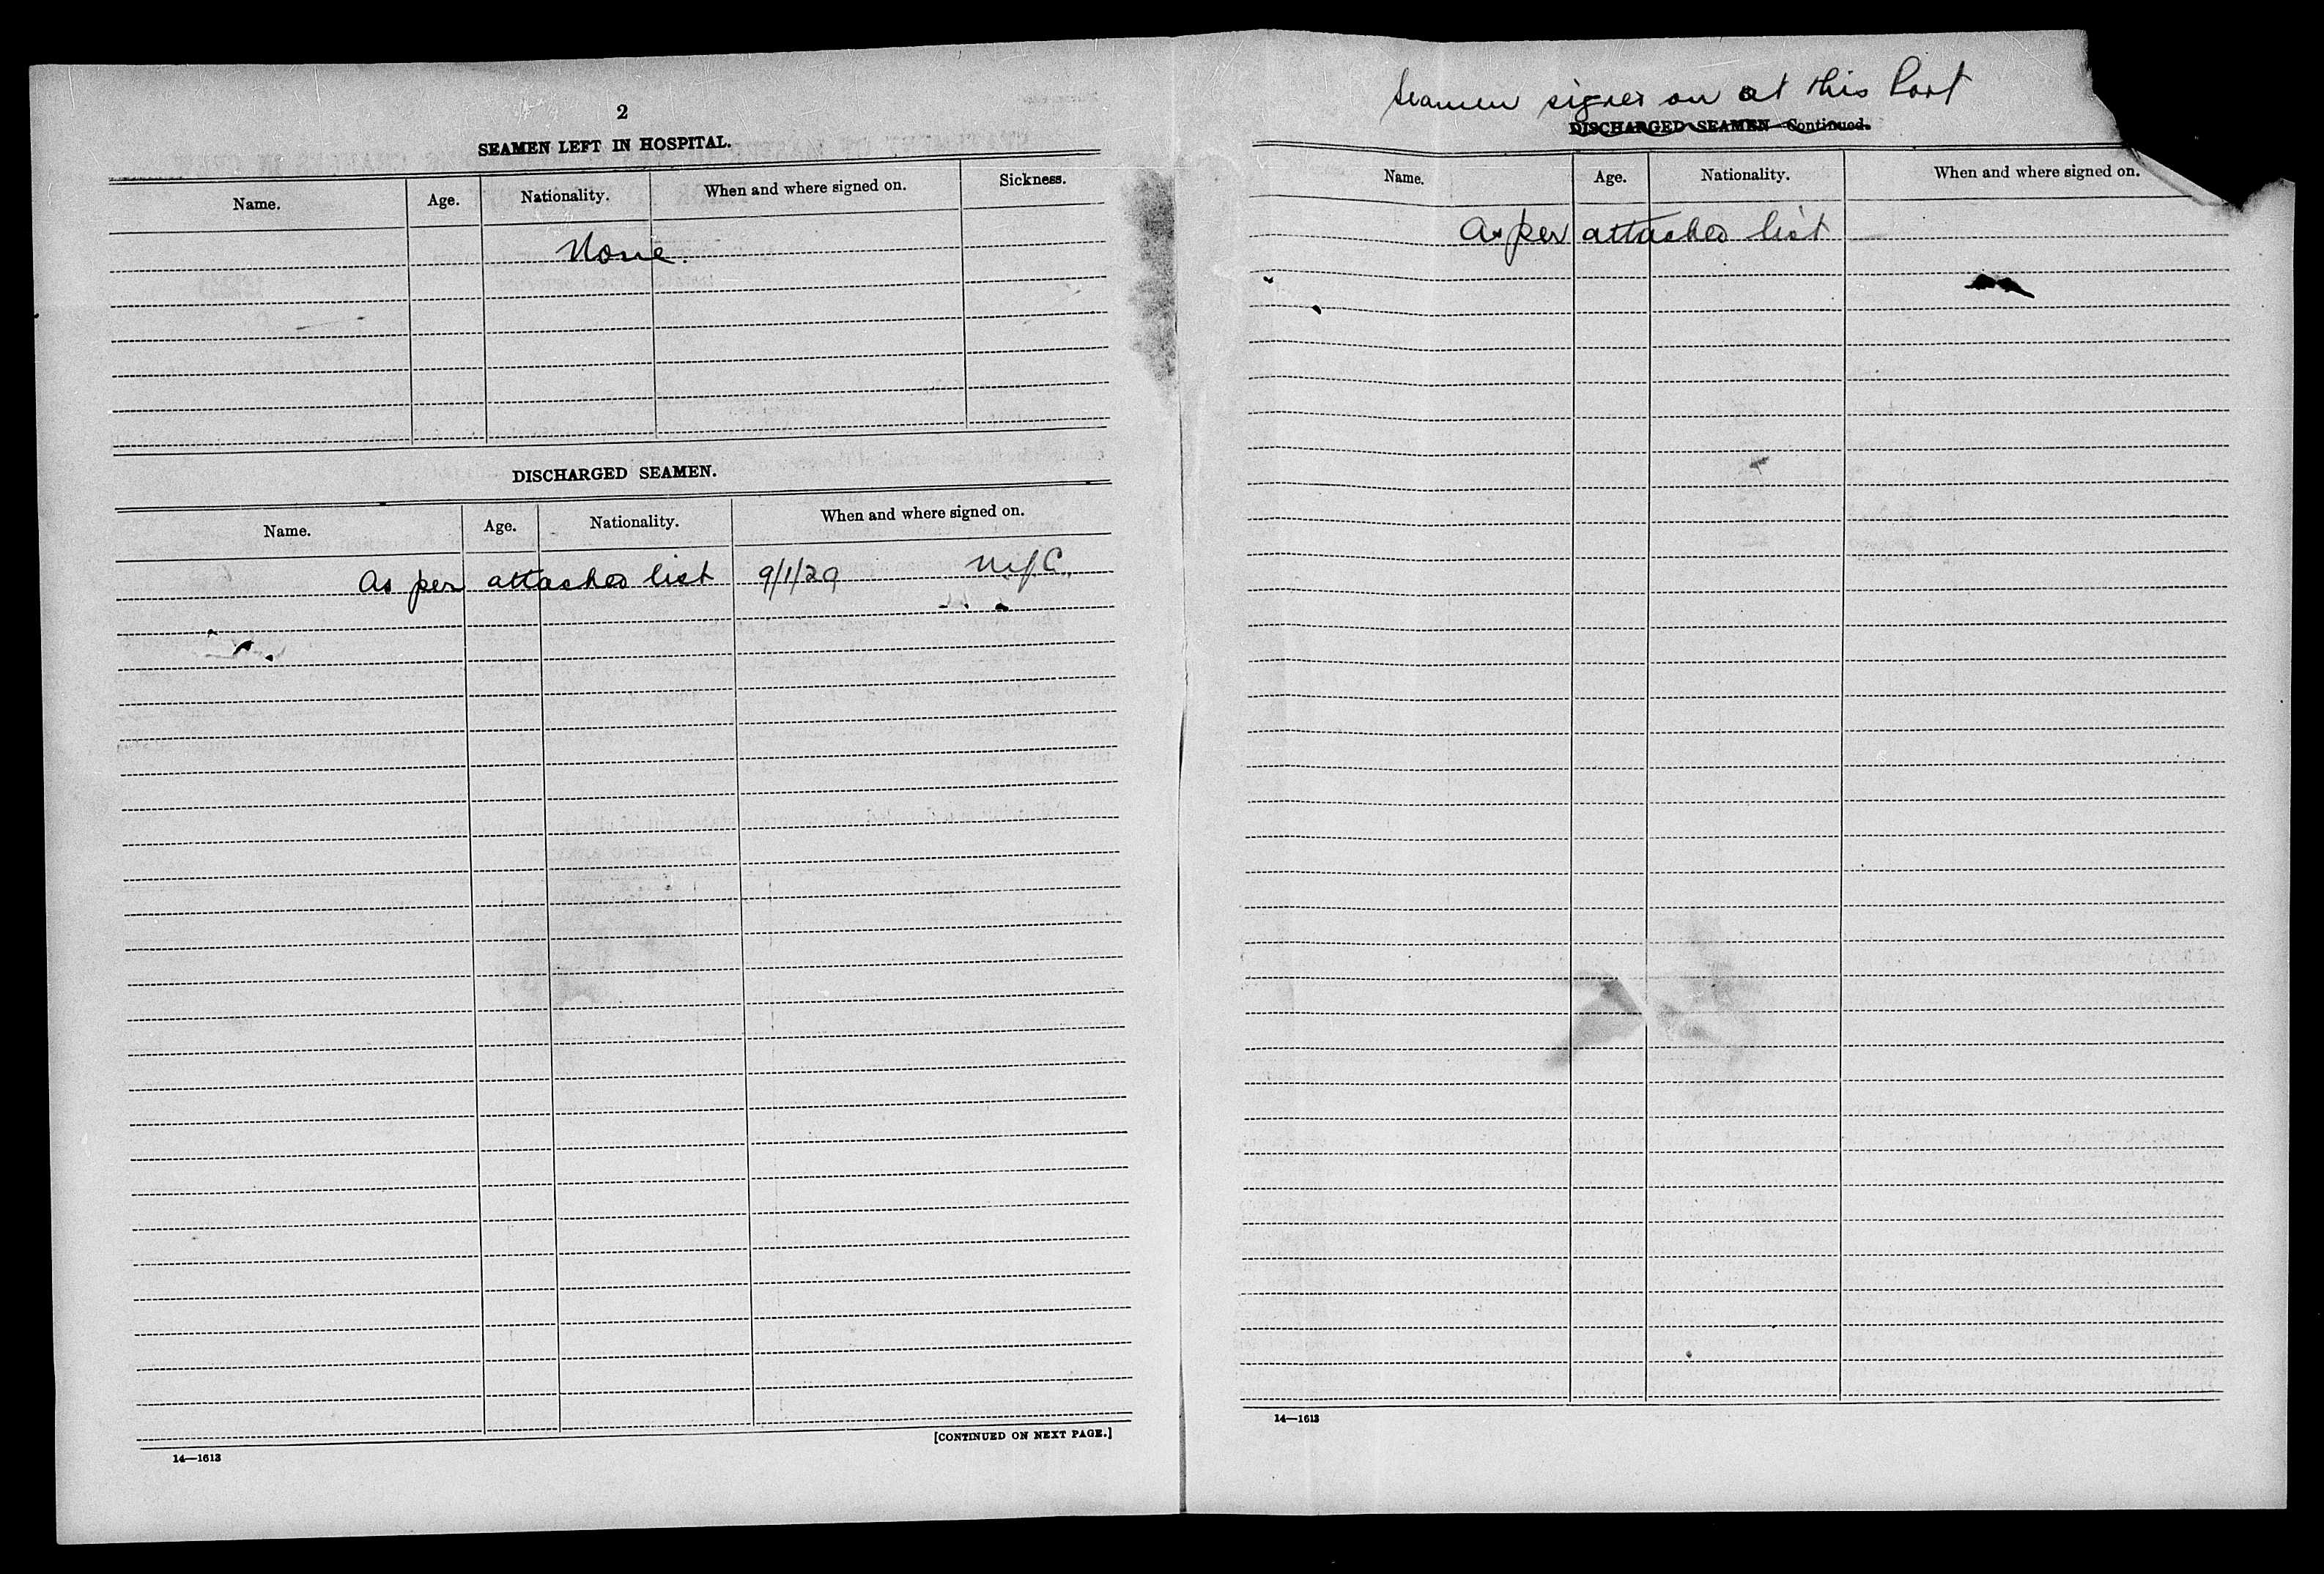 2
SEAMEN LEFT IN HOSPITAL.
Name. Age. Nationality. When and where signed on. Sickness.
None.
DISCHARGED SEAMEN.
Name. Age. Nationality. When and where signed on.
As per attached list 9/1/29
[CONTINUED ON NEXT PAGE.]
14—1613
Seamen signed on at this Port
DISCHARGED SEAMEN—Continued.
Name. Age. Nationality. When and where signed on.
As per attached list
14—1613